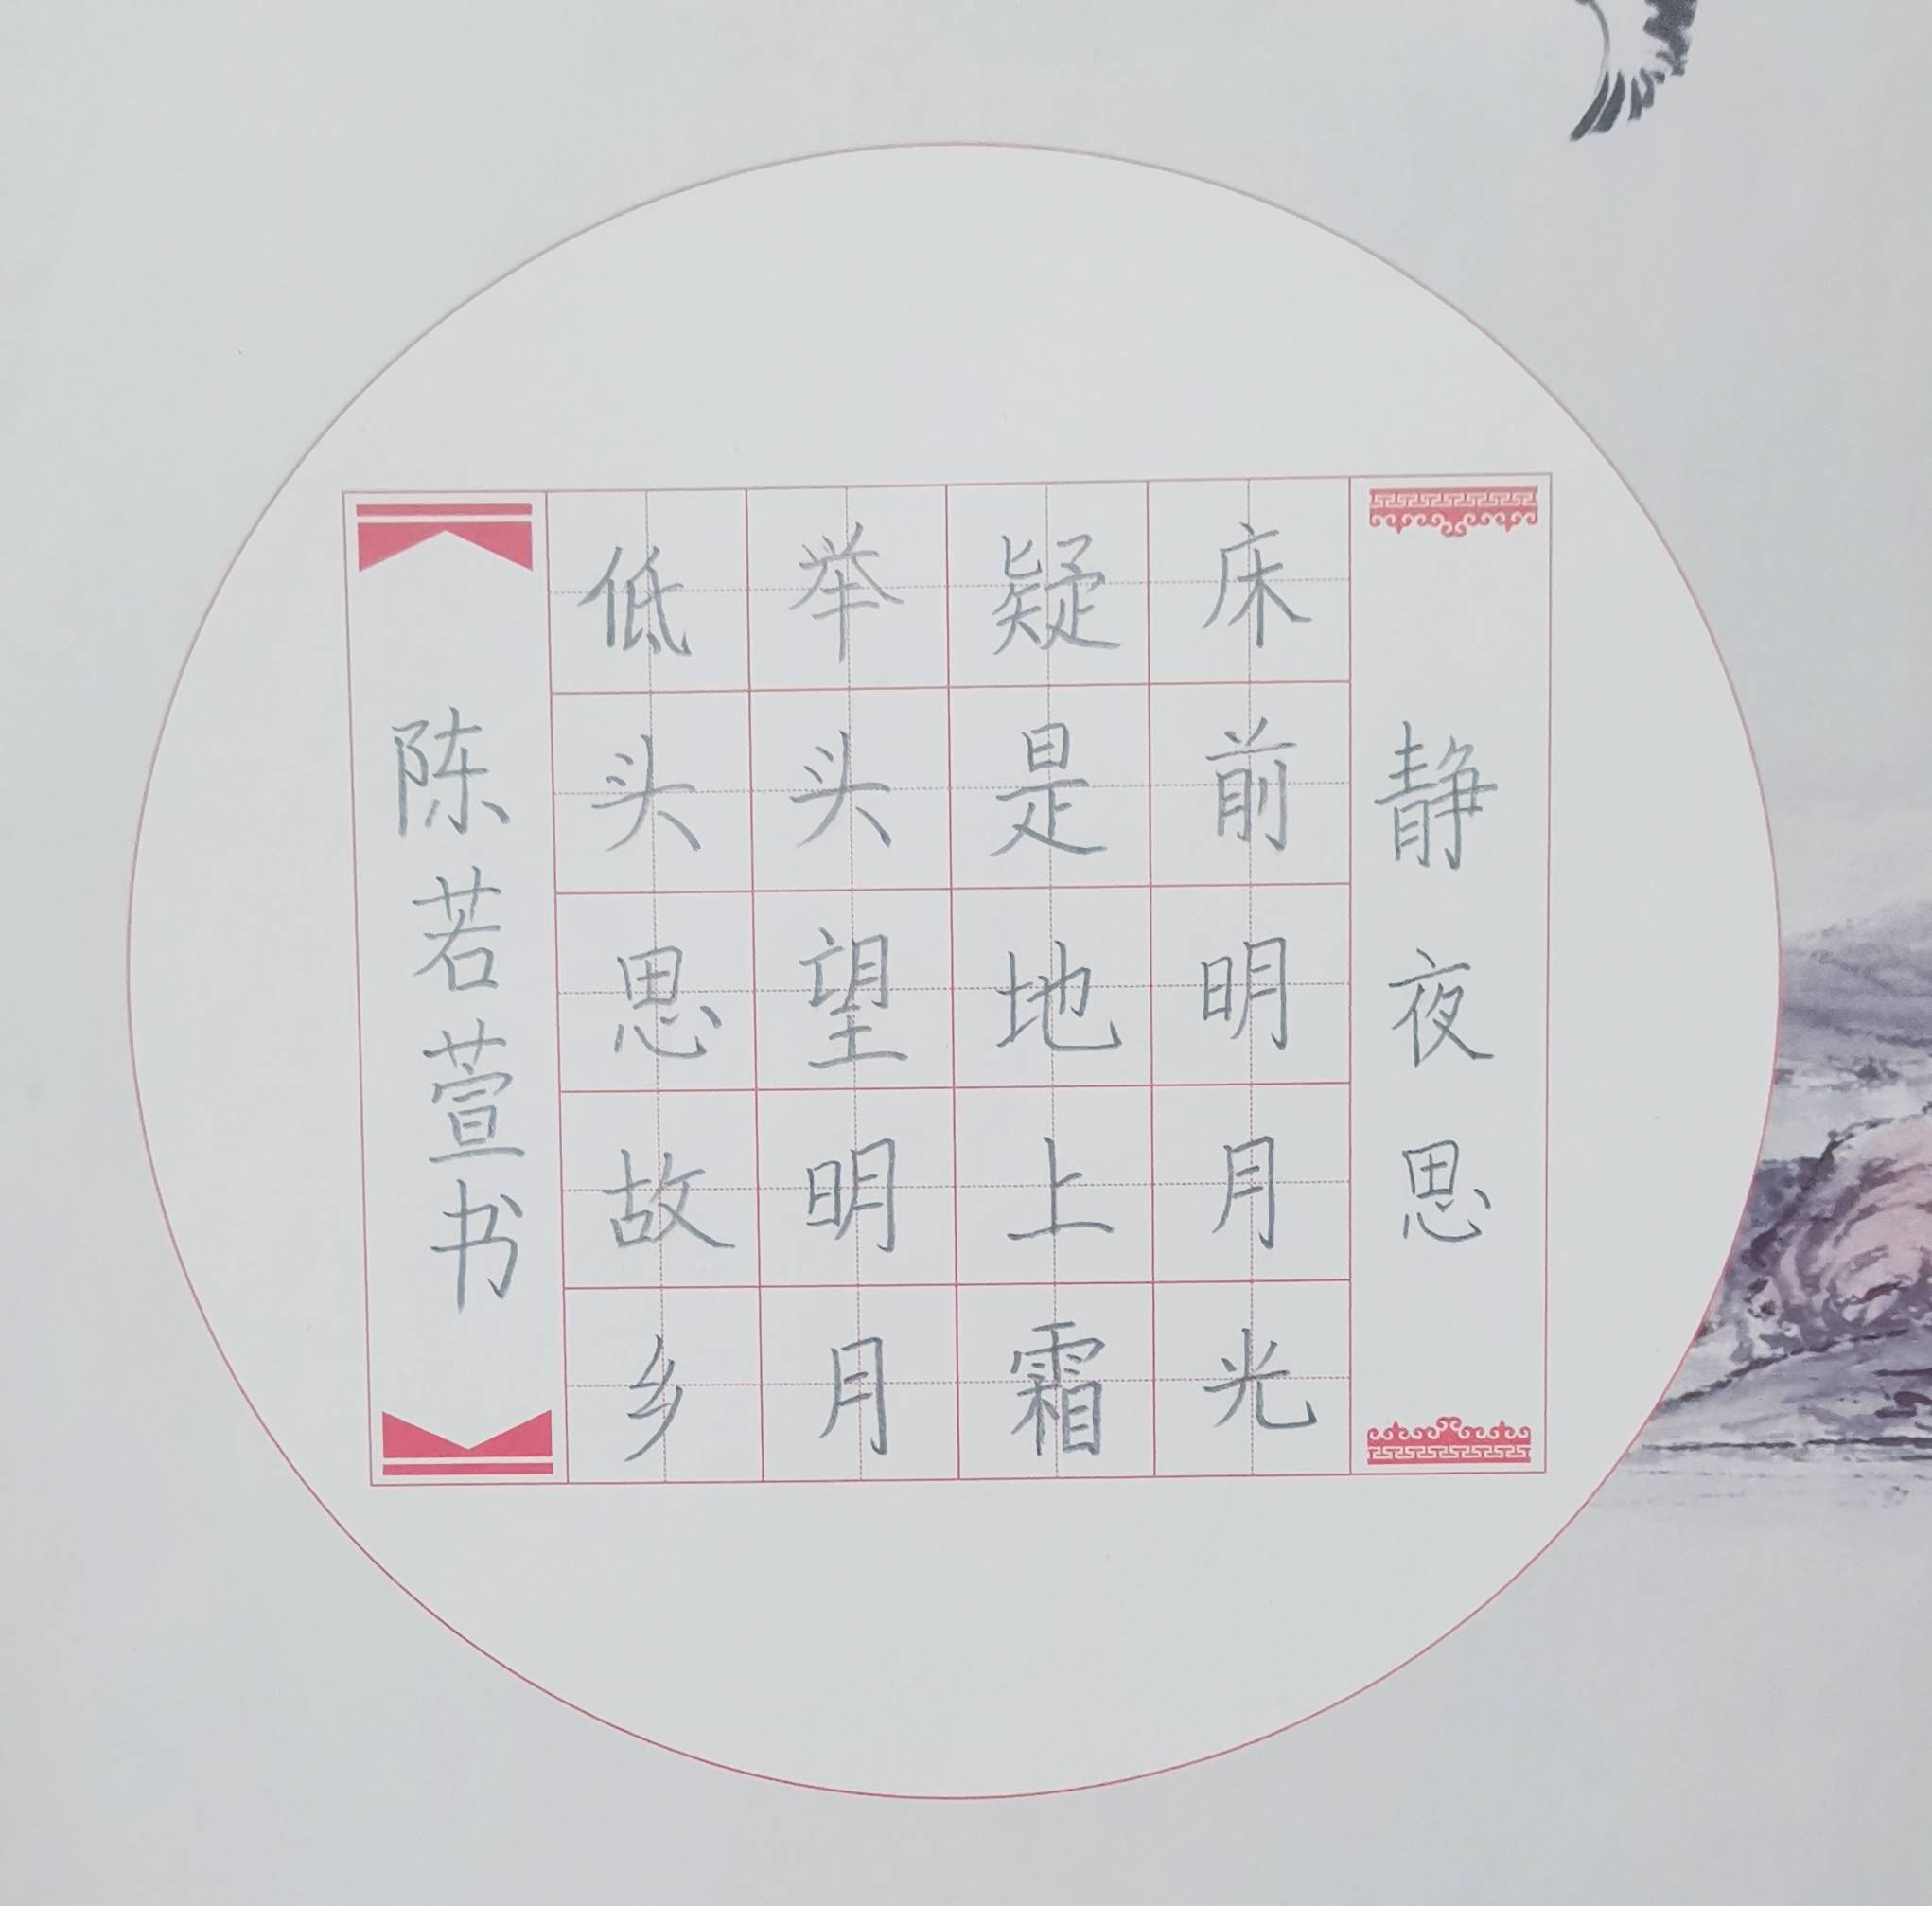 静夜思
床前明月光
疑是地上霜
举头望明月
低头思故乡
陈若萱书